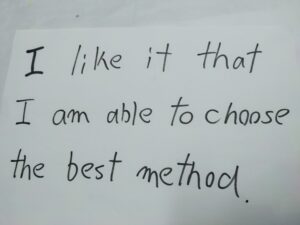 I like it that
I am able to choose
the best method.